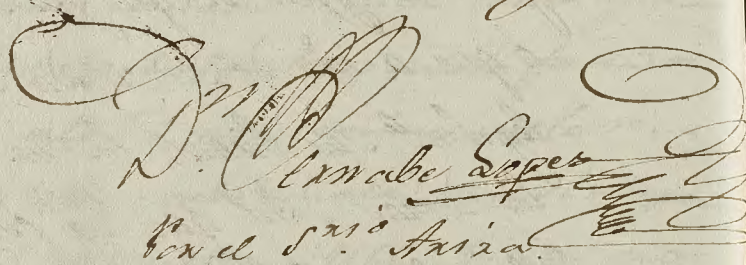 Dn. Bernabe Lopez
Por el Srio. Ariza.